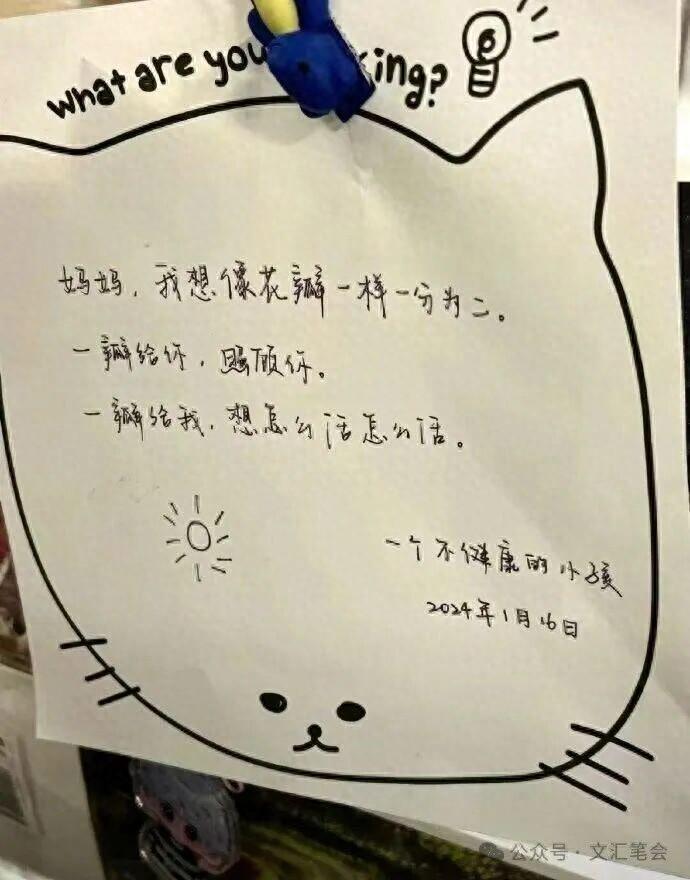 what are you king?
妈妈，我想像花瓣一样一分为二。
一瓣给你，照顾你。
一瓣给我，想怎么活怎么活。
一个不健康的小孩
2024年1月16日
公众号·文汇笔会